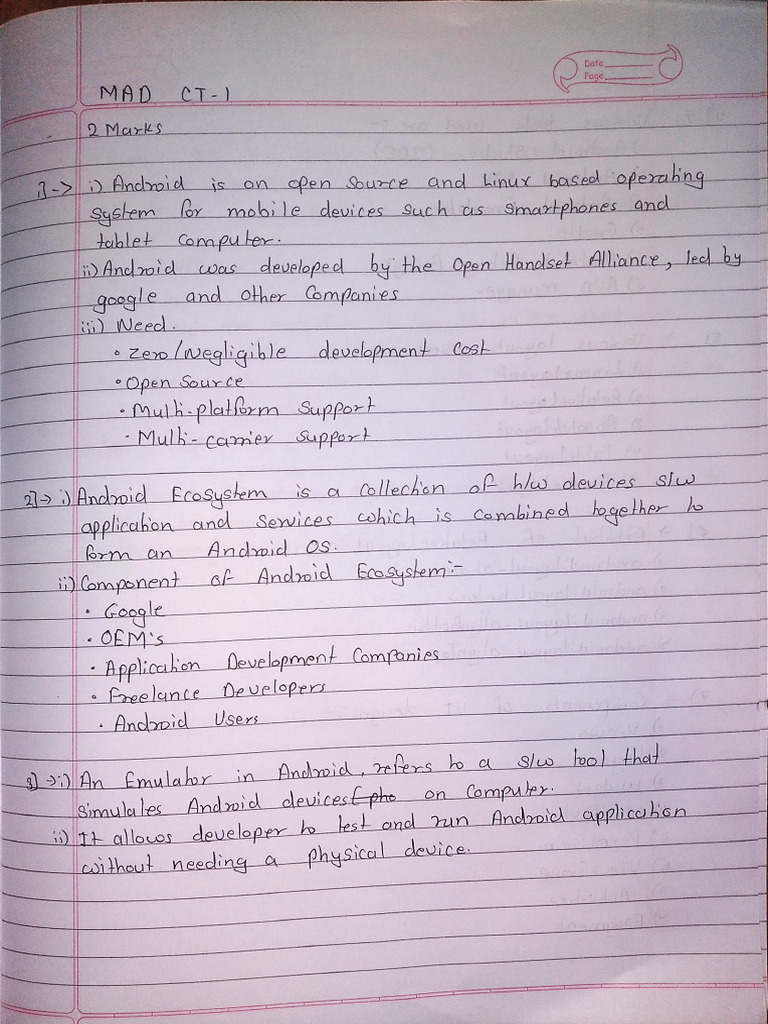 Date
Page
MAD CT-1
2 Marks
1] -> i) Android is an open source and Linux based operating
system for mobile devices such as smartphones and
tablet computer.
ii) Android was developed by the Open Handset Alliance, led by
google and other Companies
iii) Need.
• Zero/Negligible development cost
• Open Source
• Multi-platform support
• Multi-carrier support
2] -> i) Android Ecosystem is a collection of h/w devices s/w
application and services which is combined together to
form an Android OS.
ii) Component of Android Ecosystem:-
• Google
• OEM's
• Application Development Companies
• Freelance Developers
• Android Users
3] -> i) An Emulator in Android, refers to a s/w tool that
simulates Android devices (pho on Computer.
ii) It allows developer to test and run Android application
without needing a physical device.